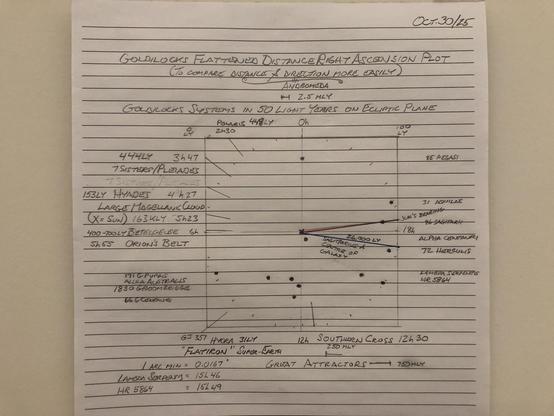 OCT. 30/25
GOLDILOCKS FLATTENED DISTANCE RIGHT ASCENSION PLOT
(TO COMPARE DISTANCE & DIRECTION MORE EASILY)
ANDROMEDA
2.5 MLY
GOLDILOCKS SYSTEMS IN 50 LIGHT YEARS ON ECLIPTIC PLANE
POLARIS 448LY 0h
2h30
LY
100 LY
444LY 3h47
85 PEGASI
7 SISTERS/PLEIADES
153LY HYADES 4h27
31 AQUILAE
LARGE MAGELLANIC CLOUD
SUN'S BEARING
(X = SUN) 163KLY 5h23
18h
400-700LY BETELGEUSE 6h
26,000 LY
ALPHA CENTAURI
5h65 ORION'S BELT
SAGITTARIUS A
CENTER OF
GALAXY
72 HERCULIS
171 G PUPPIS
LAMBDA SERPENTIS
HR 5864
1830 GROOMBRIDGE
GJ 357 HYDRA 31LY 12h SOUTHERN CROSS 12h30
"FLATIRON" SUPER-EARTH
250 MLY
GREAT ATTRACTORS 750 MLY
1 ARC MIN = 0.0167°
LAMBDA SERPENS = 15h46
HR 5864 = 15h49